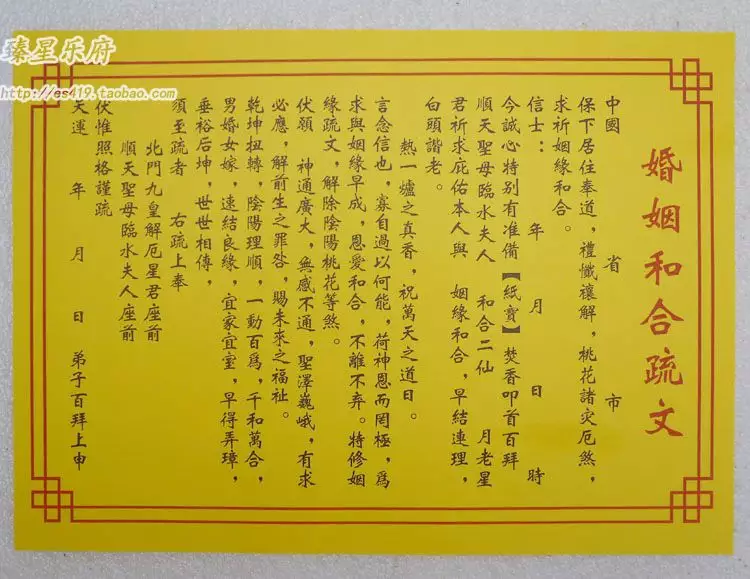 臻星乐府
http://es419.taobao.com
婚姻和合疏文
中國　省　市
保下居住奉道，禮懺禳解，桃花諸灾厄煞，
求祈姻緣和合。
信士：　年　月　日　時
今誠心特别有准備【紙寳】焚香叩首百拜
順天聖母臨水夫人　和合二仙　月老星
君祈求庇佑本人與　姻緣和合，早結連理，
白頭諧老。
熱一爐之真香，祝萬天之道日。
言念信也，寡自過以何能，荷神恩而罔極，爲
求與姻緣早成，恩愛和合，不離不弃。特修姻
緣疏文，解除陰陽桃花等煞。
伏願　神通廣大，無感不通，聖澤巍峨，有求
必應，解前生之罪咎，賜未來之福祉。
乾坤扭轉，陰陽理順，一動百爲，千和萬合，
男婚女嫁，速結良緣，宜家宜室，早得弄璋，
垂裕后坤，世世相傳，
須至疏者　右疏上奉
北門九皇解厄星君座前
順天聖母臨水夫人座前
伏惟照格謹疏
天運　年　月　日　弟子百拜上申